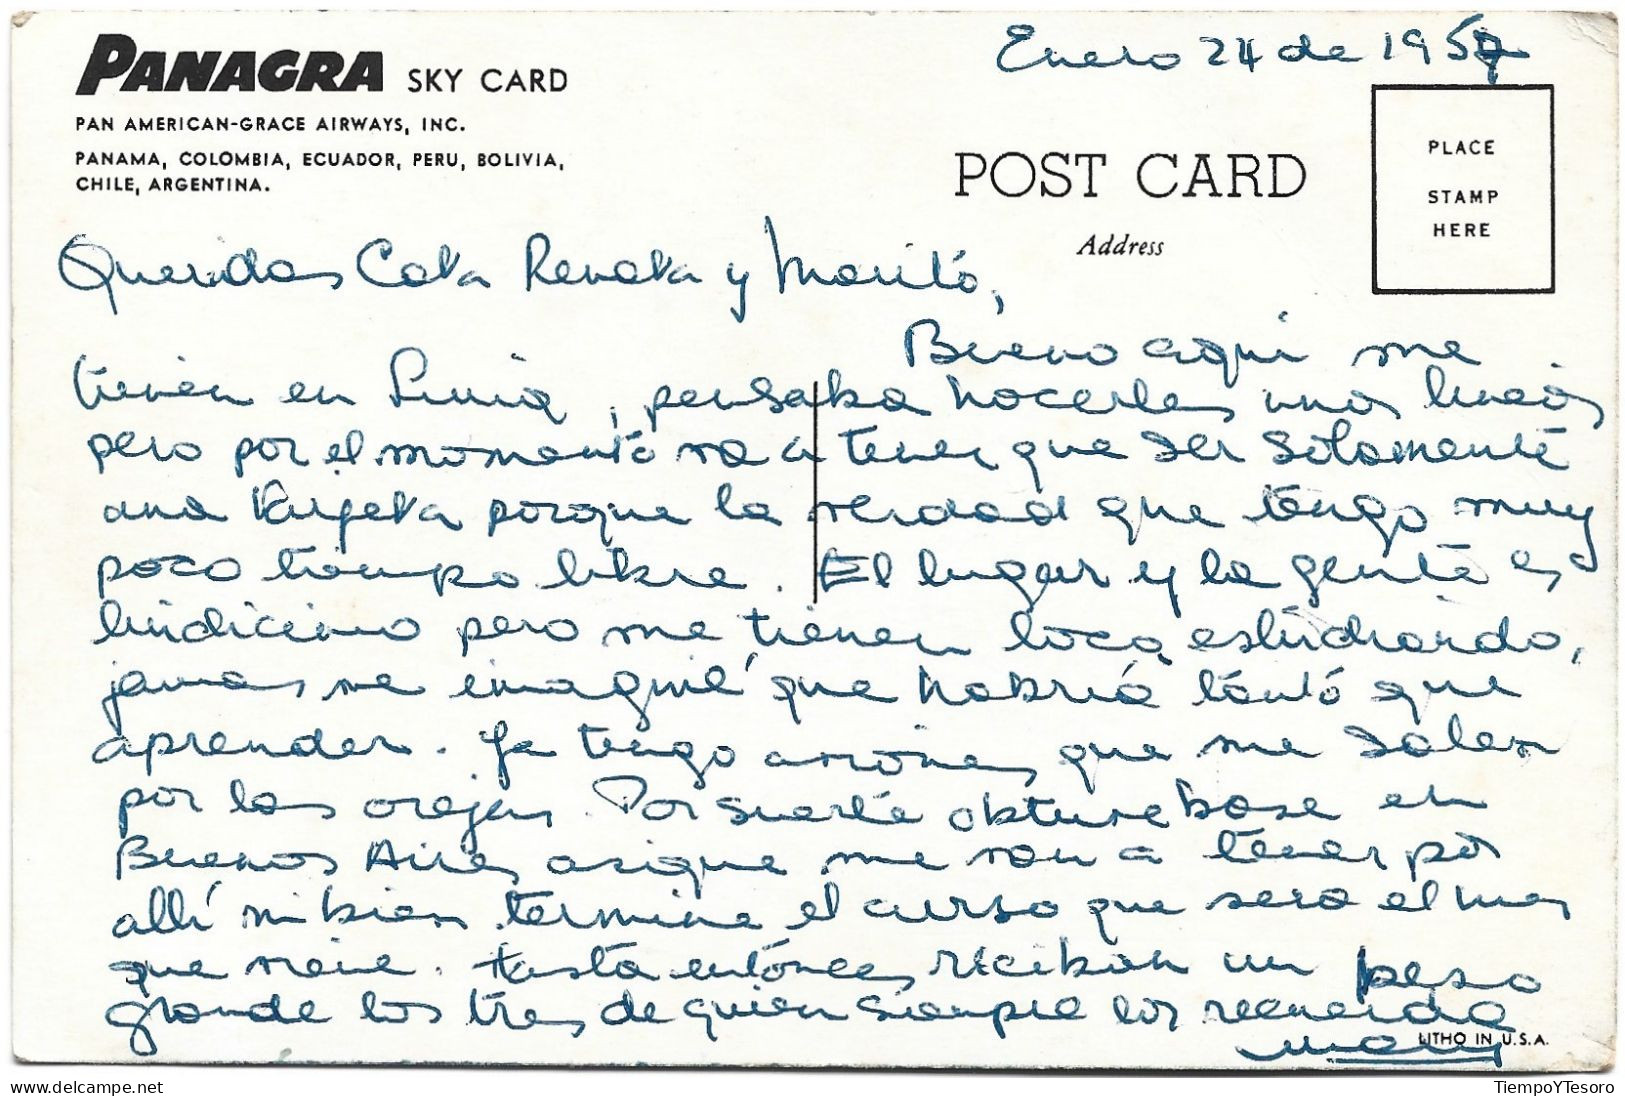 PANAGRA SKY CARD
PAN AMERICAN-GRACE AIRWAYS, INC.
PANAMA, COLOMBIA, ECUADOR, PERU, BOLIVIA,
CHILE, ARGENTINA.
Enero 24 de 1957
POST CARD
Address
PLACE
STAMP
HERE
Queridas Cota Renata y Maritó,
Bueno aqui me
tienen en Lima, pensaba hacerles unas lineas
pero por el momento va a tener que ser solamente
una tarjeta porque la verdad que tengo muy
poco tiempo libre. El lugar y la gente es
lindicimo pero me tienen loca estudiando,
jamas me imaginé que habria tanto que
aprender. Ya tengo aviones que me salen
por las orejas. Por suerte obtuve base en
Buenos Aires asique me van a tener por
allí ni bien termine el curso que sera el mes
que viene. Hasta entonces reciban un beso
grande los tres de quien siempre los recuerda
Mary
LITHO IN U.S.A.
TiempoYTesoro